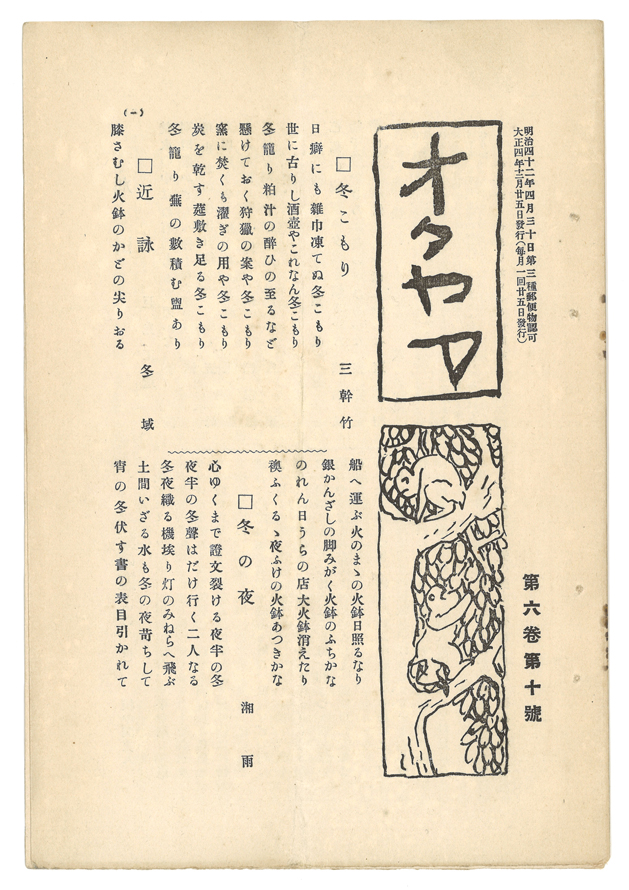 明治四十二年四月三十日第三種郵便物認可
大正四年十二月廿五日發行(毎月一回廿五日發行)
オクヤマ
第六卷第十號
□冬こもり 三幹竹
日癖にも雜巾凍てぬ冬こもり
世に古りし酒壺やこれなん冬こもり
冬籠り粕汁の醉ひの至るなど
懸けておく狩獵の案や冬こもり
窯に焚くも濯ぎの用や冬こもり
炭を乾す莚敷き足る冬こもり
冬籠り蕪の數積む盥あり
□近詠 冬域
膝さむし火鉢のかどの尖りおる
(一)
船へ運ぶ火のまゝの火鉢日照るなり
銀かんざしの脚みがく火鉢のふちかな
のれん日うらの店大火鉢消えたり
襖ふくるゝ夜ふけの火鉢あつきかな
□冬の夜 湘雨
心ゆくまで證文裂ける夜半の冬
夜半の冬聲はだけ行く二人なる
冬夜織る機埃り灯のみねらへ飛ぶ
土間いざる水も冬の夜苛ちして
宵の冬伏す書の表目引かれて